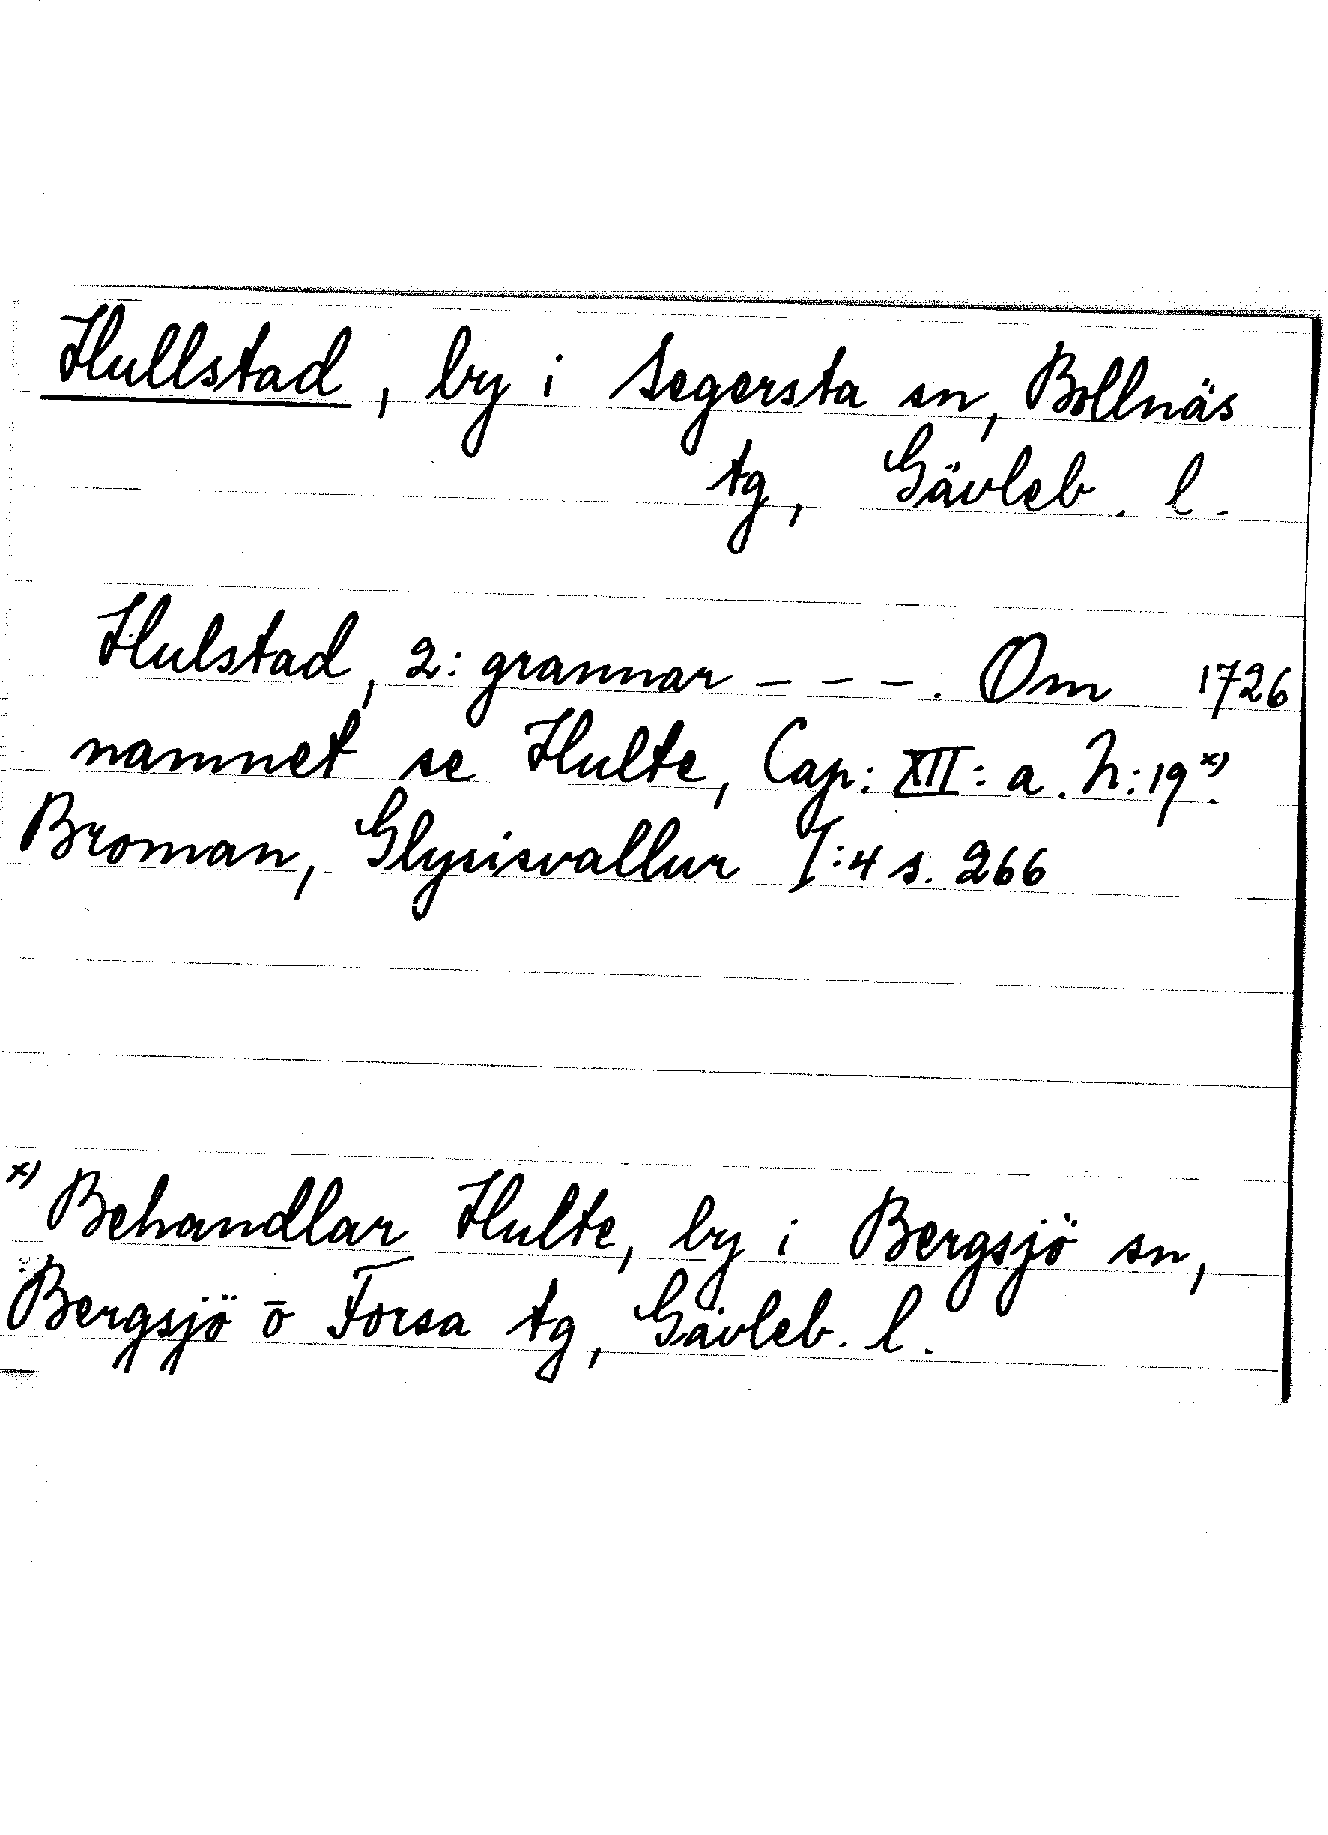 Hullstad, by i Segersta sn, Bollnäs
tg, Gävleb. l.
Hulstad, 2: grannar - - - . Om 1726
namnet se Hulte, Cap: XII: a. h: 19 x).
Broman, Glysisvallur I:4 s. 266
x) Behandlar Hulte, by i Bergsjö sn,
Bergsjö o Forsa tg, Gävleb. l.